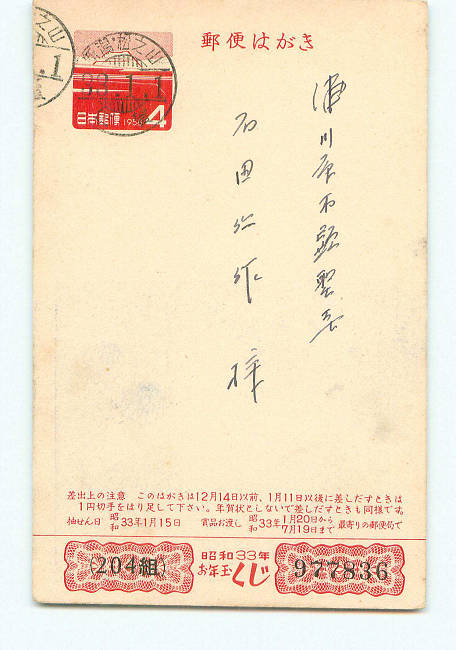 郵便はがき
新潟・松之山
33.1.1
日本郵便 1958 4
石田
様
差出上の注意 このはがきは12月14日以前、1月11日以後に差しだすときは
1円切手をはり足して下さい。年賀状としないで差しだすときも同様です。
抽せん日 昭和33年1月15日 賞品お渡し 昭和33年1月20日から7月19日まで 最寄りの郵便局で
昭和33年
お年玉くじ
(204組)
977836